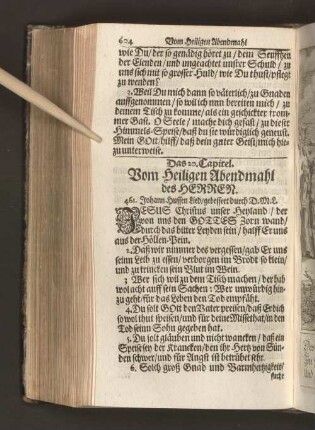 604 Vom Heiligen Abendmahl
wie Du/der so genädig höret zu/ dem Seufftzen
der Elenden/ und ungeachtet unsrer Schuld/ zu
uns sich mit so grosser Huld/ wie Du thust/pflegt
zu wenden?
2. Weil Du mich dann so väterlich/zu Gnaden
auffgenommen/ so wil ich nun bereiten mich/ zu
deinem Tisch zu kommen/als ein geschickter from-
mer Gast. O Seele/ mache dich gefast/ zu dieser
Himmels-Speise/daß du sie würdiglich geneust.
Mein GOtt/hilff/ daß dein guter Geist/mich hie-
zu unterweise.
Das 20. Capitel.
Vom Heiligen Abendmahl
des HERREN.
461. Johann Hussen Lied/gebessert durch D.M.L.
JESUS Christus unser Heyland/ der
von uns den GOTTES Zorn wand/
durch das bitter Leyden sein/ halff Er uns
aus der Höllen-Pein.
2. Daß wir nimmer des vergessen/gab Er uns
seinn Leib zu essen/ verborgen im Brodt so klein/
und zu trincken sein Blut im Wein.
3. Wer sich wil zu dem Tisch machen/ der hab
wol acht auff sein Sachen: Wer unwürdig hin-
zu geht/für das Leben den Tod empfäht.
4. Du solt GOtt den Vater preisen/daß Er dich
so wol thut speisen/und für deine Missethat/in den
Tod seinn Sohn gegeben hat.
5. Du solt gläuben und nicht wancken/ daß ein
Speise sey der Krancken/den ihr Hertz von Sün-
den schwer/und für Angst ist betrübet sehr.
6. Solch groß Gnad und Barmhertzigkeit/
sucht